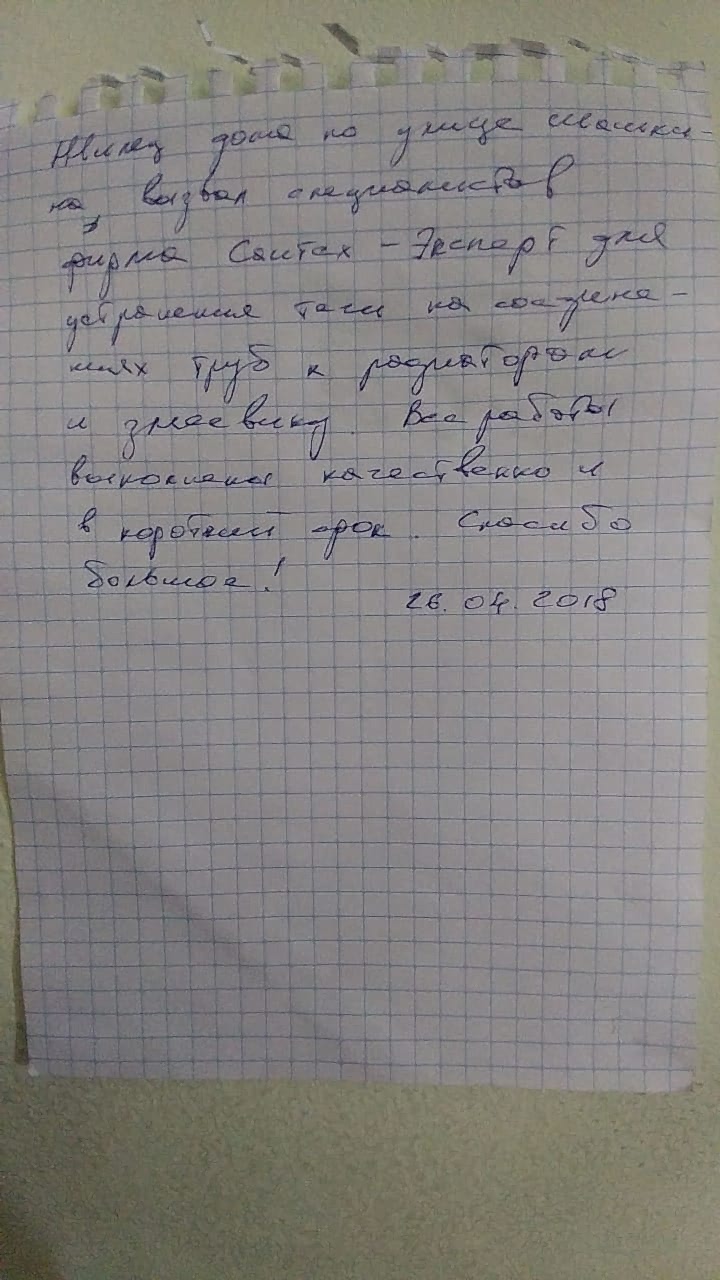 Жилец дома по улице Ивашки-
на, вызвал специалистов
фирма Сантех - Эксперт для
устранения течи на соедине-
ниях труб к радиаторам
и змеевику. Все работы
выполнены качественно и
в короткий срок. Спасибо
большое!
26.04.2018